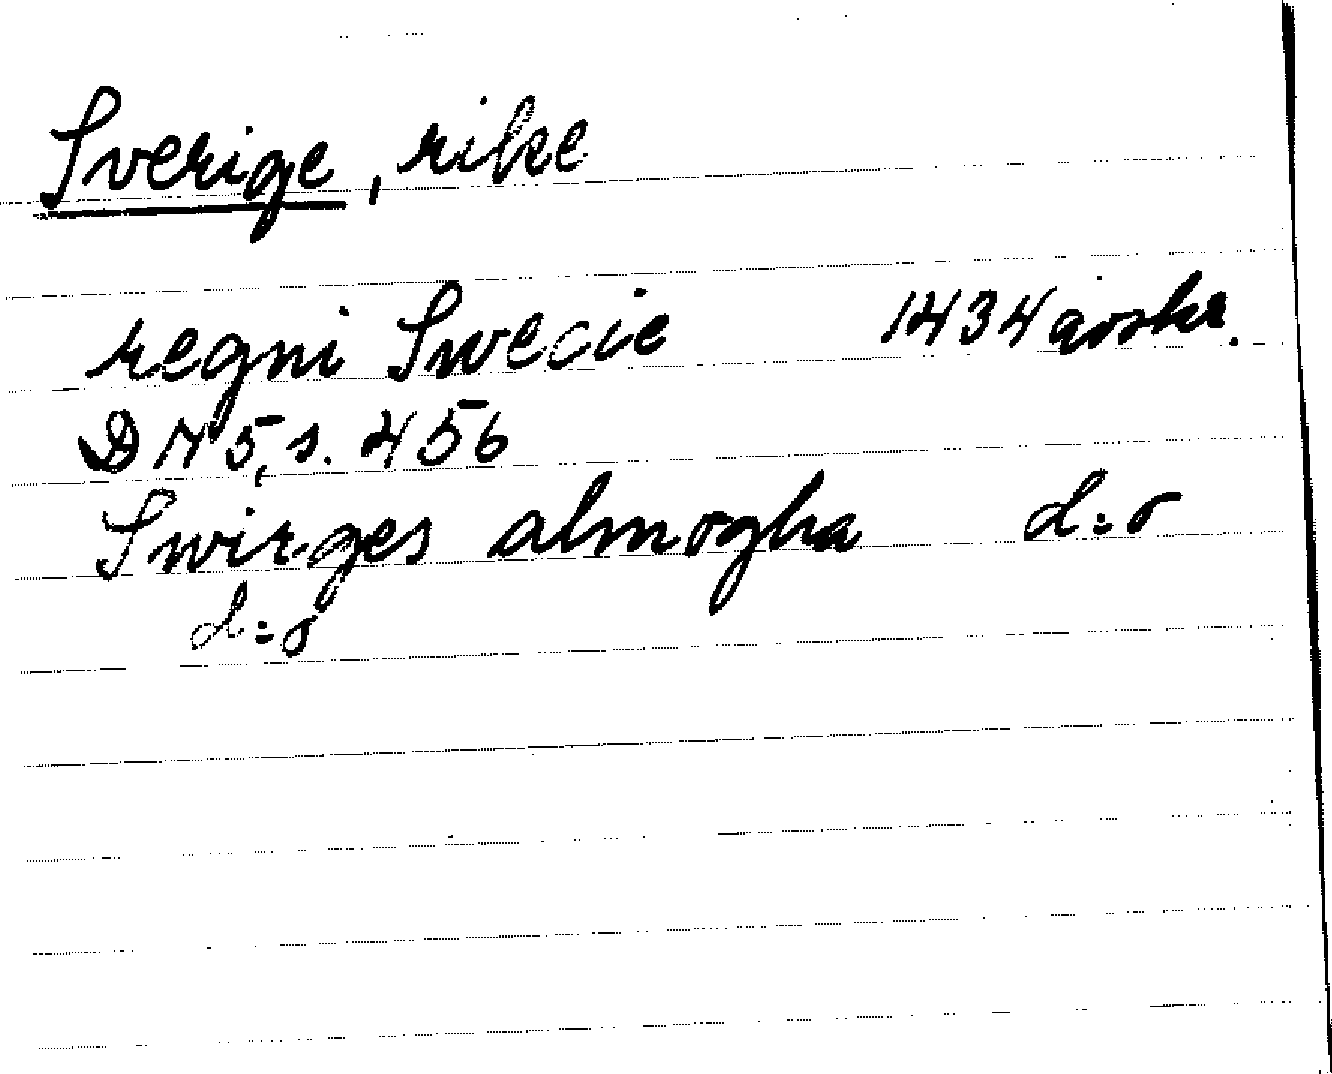 Sverige, rike
regni Swecie 1434 avskr.
D 75, s. 456
Swirges almogha d:o
d:o